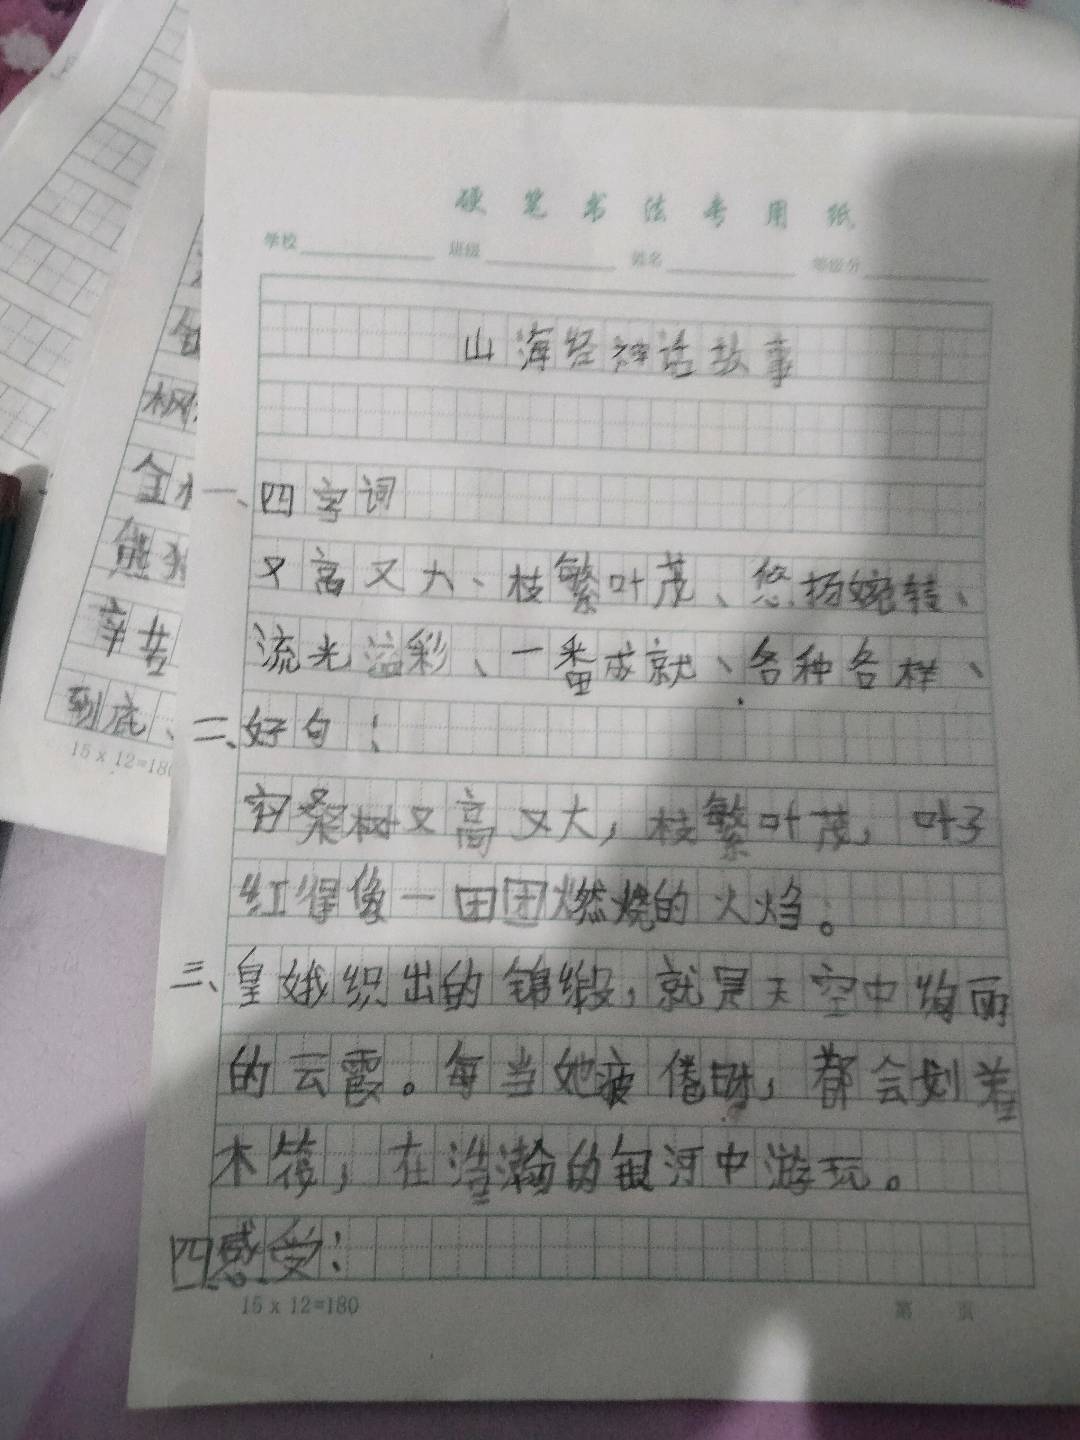 硬笔书法专用纸
学校 班级 姓名 等级分
山海经神话故事
一、四字词
又高又大、枝繁叶茂、悠扬婉转、
流光溢彩、一番成就、各种各样、
二、好句：
穷桑树又高又大，枝繁叶茂，叶子
红得像一团团燃烧的火焰。
三、皇娥织出的锦缎，就是天空中绚丽
的云霞。每当她疲倦时，都会划着
木筏，在浩瀚的银河中游玩。
四感受：
15 x 12=180
第 页
枫
金
熊
辛苦
到底、
15 x 12=180